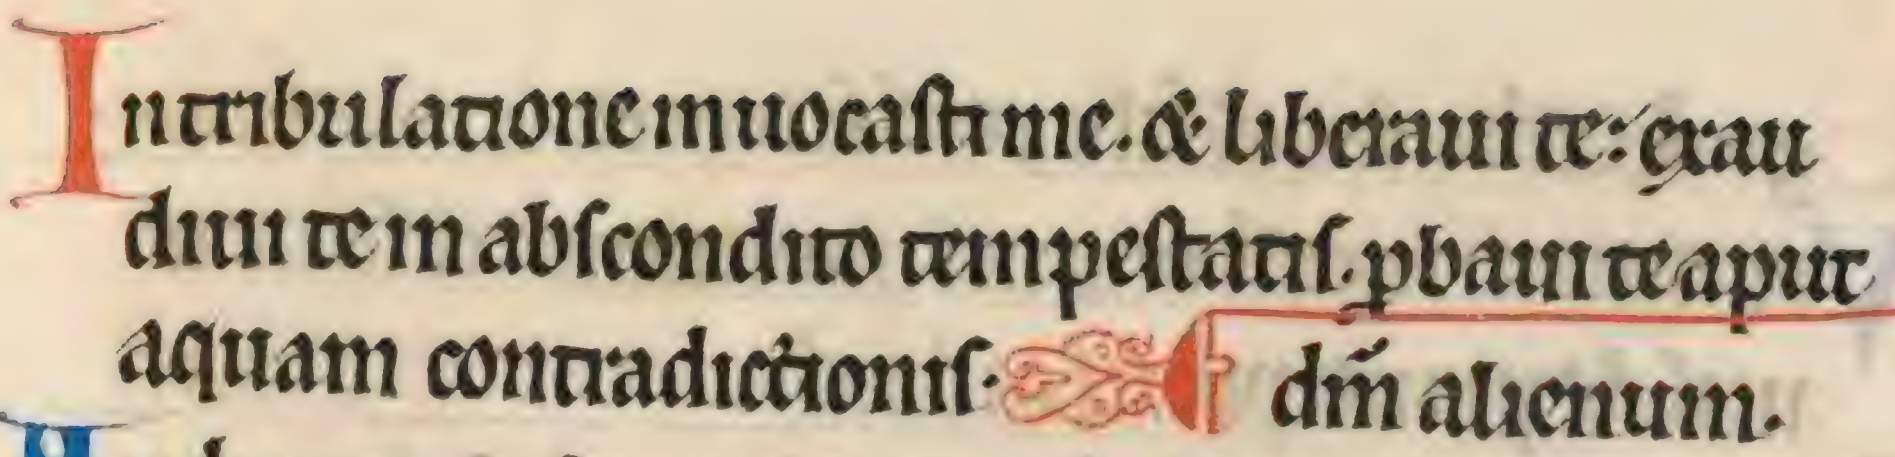 In tribulatione inuocasti me. & liberaui te: exau
diui te in abscondito tempestatis. ꝓbaui te aput
aquam contradictionis. dm̄ alienum.